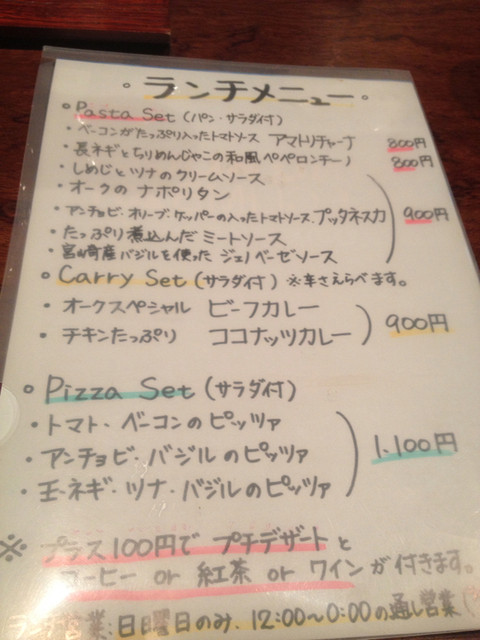 。ランチメニュー。
○ Pasta Set (パン・サラダ付)
・ベーコンがたっぷり入ったトマトソース アマトリチャーナ 800円
・長ネギとちりめんじゃこの和風ペペロンチーノ 800円
・しめじとツナのクリームソース
・オークのナポリタン
・アンチョビ・オリーブ・ケッパーの入ったトマトソース・プッタネスカ 900円
・たっぷり煮込んだミートソース
・宮崎産バジルを使ったジェノベーゼソース
○ Carry Set (サラダ付) ※辛さえらべます。
・オークスペシャル ビーフカレー
・チキンたっぷり ココナッツカレー 900円
○ Pizza Set (サラダ付)
・トマト・ベーコンのピッツァ
・アンチョビ・バジルのピッツァ 1.100円
・玉ネギ・ツナ・バジルのピッツァ
※ プラス100円でプチデザートと
コーヒー or 紅茶 or ワインが付きます。
営業:日曜日のみ、12:00~0:00の通し営業